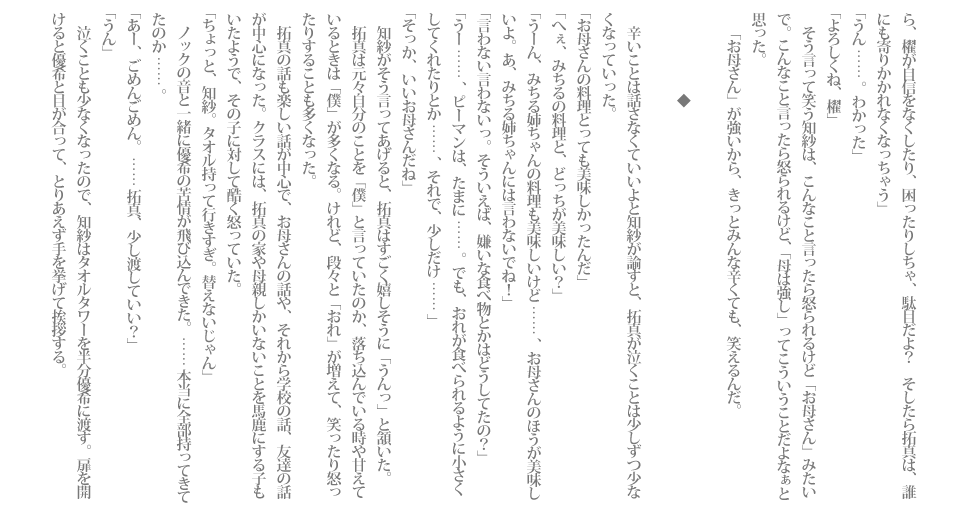 ら、櫂が自信をなくしたり、困ったりしちゃ、駄目だよ？　そしたら拓真は、誰
にも寄りかかれなくなっちゃう」
「うん……。わかった」
「よろしくね、櫂」
　そう言って笑う知紗は、こんなこと言ったら怒られるけど「お母さん」みたい
で。こんなこと言ったら怒られるけど、「母は強し」ってこういうことだよなぁと
思った。
　「お母さん」が強いから、きっとみんな辛くても、笑えるんだ。
◆
　辛いことは話さなくていいよと知紗が諭すと、拓真が泣くことは少しずつ少な
くなっていった。
「お母さんの料理とっても美味しかったんだ」
「へぇ、みちるの料理と、どっちが美味しい？」
「うーん、みちる姉ちゃんの料理も美味しいけど……、お母さんのほうが美味し
いよ。あ、みちる姉ちゃんには言わないでね！」
「言わない言わないっ。そういえば、嫌いな食べ物とかはどうしてたの？」
「うー……、ピーマンは、たまに……。でも、おれが食べられるように小さく
してくれたりとか……、それで、少しだけ……」
「そっか、いいお母さんだね」
　知紗がそう言ってあげると、拓真はすごく嬉しそうに「うんっ」と頷いた。
　拓真は元々自分のことを「僕」と言っていたのか、落ち込んでいる時や甘えて
いるときは「僕」が多くなる。けれど、段々と「おれ」が増えて、笑ったり怒っ
たりすることも多くなった。
　拓真の話も楽しい話が中心で、お母さんの話や、それから学校の話、友達の話
が中心になった。クラスには、拓真の家や母親しかいないことを馬鹿にする子も
いたようで、その子に対して酷く怒っていた。
「ちょっと、知紗。タオル持って行きすぎ。替えないじゃん」
　ノックの音と一緒に優希の苦情が飛び込んできた。……本当に全部持ってきて
たのか……。
「あー、ごめんごめん。……拓真、少し渡していい？」
「うん」
　泣くことも少なくなったので、知紗はタオルタワーを半分優希に渡す。扉を開
けると優希と目が合って、とりあえず手を挙げて挨拶する。